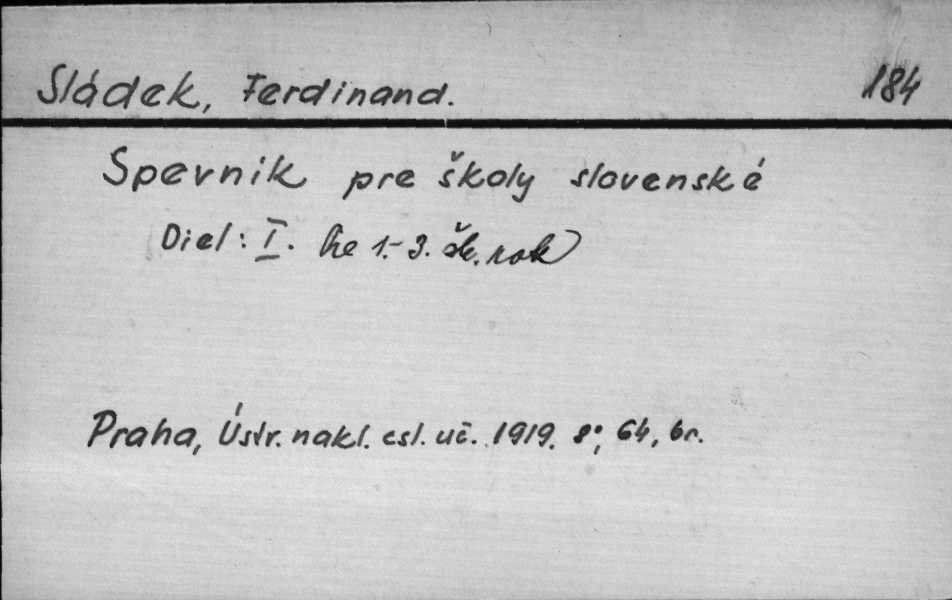 Sládek, Ferdinand. 184
Spevník pre školy slovenské
Diel: I. Pre 1.-3. šk. rok
Praha, Ústr. nakl. csl. uč. 1919. 8°, 64, br.